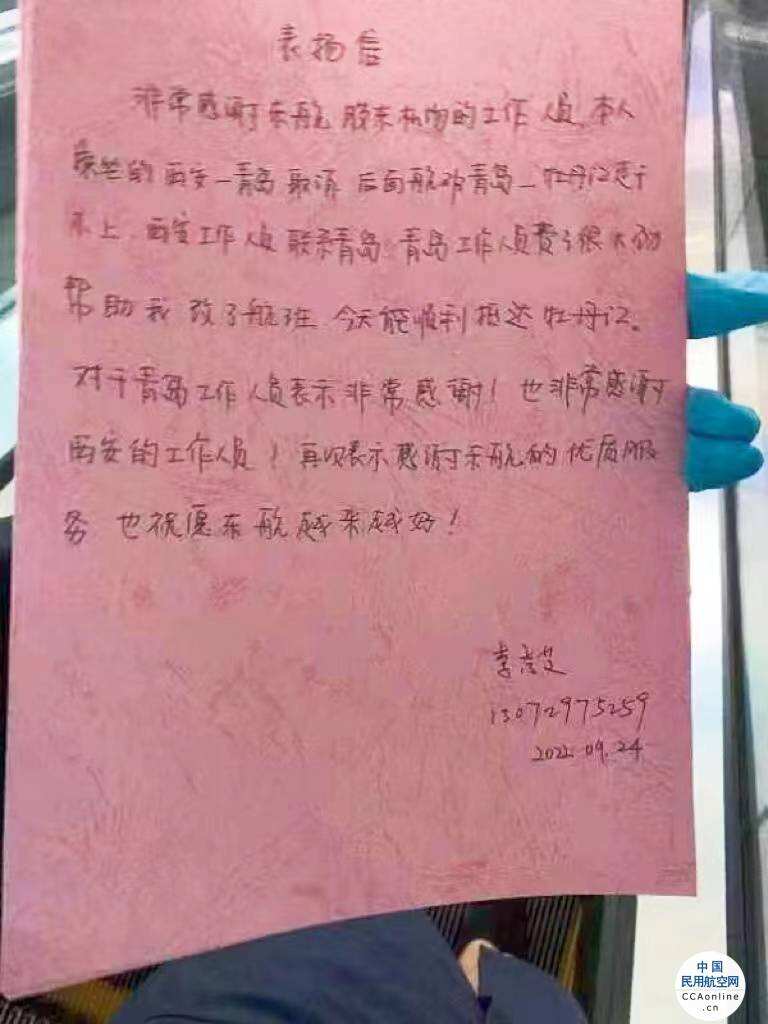 表扬信
非常感谢东航 的工作人员,本人
的西安一青岛取消 后面航班青岛一牡丹江赶
不上,西安工作人员联系青岛,青岛工作人员费了很大劲
帮助我改了航班 今天能顺利抵达牡丹江。
对于青岛工作人员表示非常感谢!也非常感谢
西安的工作人员!再次表示感谢东航的优质服
务 也祝愿东航越来越好!
李
13072975259
2022.09.24
中国
民用航空网
CCAonline
.cn